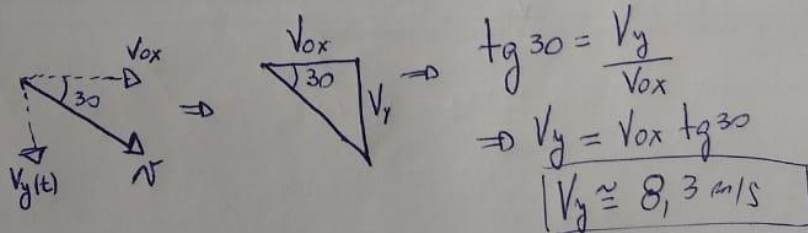 Vox
30
Vy(t)
v
⇒
Vox
30
Vy
⇒
tg 30 = Vy / Vox
⇒ Vy = Vox tg 30
Vy ≅ 8,3 m/s